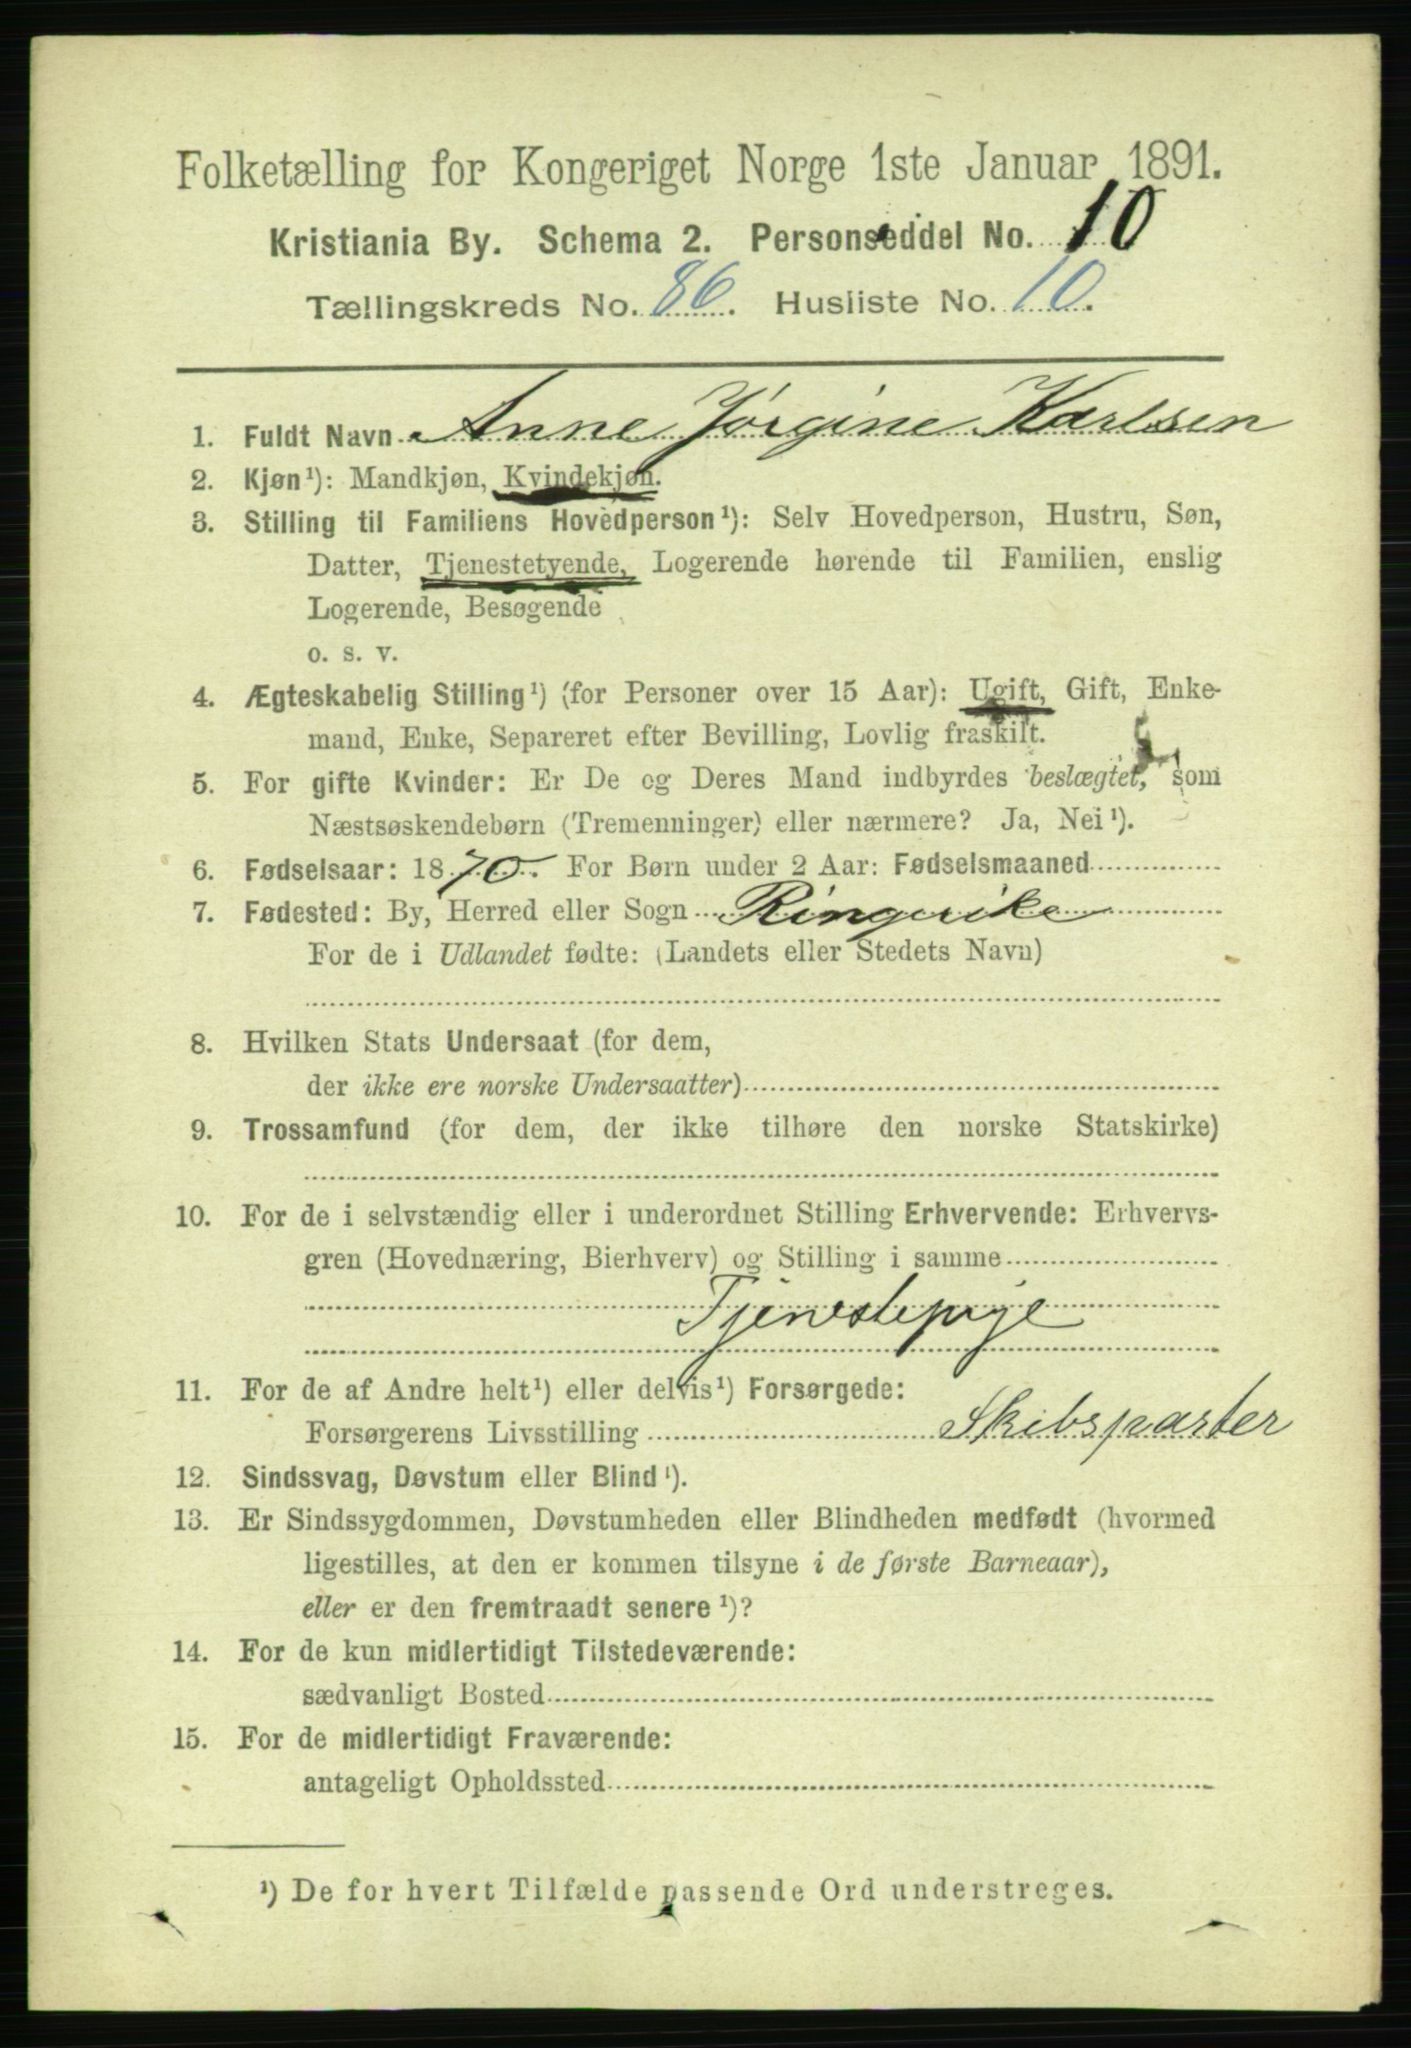 Folketælling for Kongeriget Norge 1ste Januar 1891.
Kristiania By. Schema 2. Personseddel No. 10
Tællingskreds No. 86. Husliste No. 10.
1. Fuldt Navn Anne Jørgine Karlsen
2. Kjøn¹): Mandkjøn, Kvindekjøn.
3. Stilling til Familiens Hovedperson¹): Selv Hovedperson, Hustru, Søn,
Datter, Tjenestetyende, Logerende hørende til Familien, enslig
Logerende, Besøgende
o. s. v.
4. Ægteskabelig Stilling¹) (for Personer over 15 Aar): Ugift, Gift, Enke-
mand, Enke, Separeret efter Bevilling, Lovlig fraskilt.
5. For gifte Kvinder: Er De og Deres Mand indbyrdes beslægtet, som
Næstsøskendebørn (Tremenninger) eller nærmere? Ja, Nei¹).
6. Fødselsaar: 1870. For Børn under 2 Aar: Fødselsmaaned
7. Fødested: By, Herred eller Sogn Ringerike
For de i Udlandet fødte: (Landets eller Stedets Navn)
8. Hvilken Stats Undersaat (for dem,
der ikke ere norske Undersaatter)
9. Trossamfund (for dem, der ikke tilhøre den norske Statskirke)
10. For de i selvstændig eller i underordnet Stilling Erhvervende: Erhvervs-
gren (Hovednæring, Bierhverv) og Stilling i samme
Tjenestepige
11. For de af Andre helt¹) eller delvis¹) Forsørgede:
Forsørgerens Livsstilling Skibsparter
12. Sindssvag, Døvstum eller Blind¹).
13. Er Sindssygdommen, Døvstumheden eller Blindheden medfødt (hvormed
ligestilles, at den er kommen tilsyne i de første Barneaar),
eller er den fremtraadt senere¹)?
14. For de kun midlertidigt Tilstedeværende:
sædvanligt Bosted
15. For de midlertidigt Fraværende:
antageligt Opholdssted
¹) De for hvert Tilfælde passende Ord understreges.